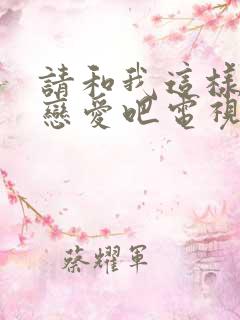 請和我這樣
戀愛吧電視
蔡耀軍